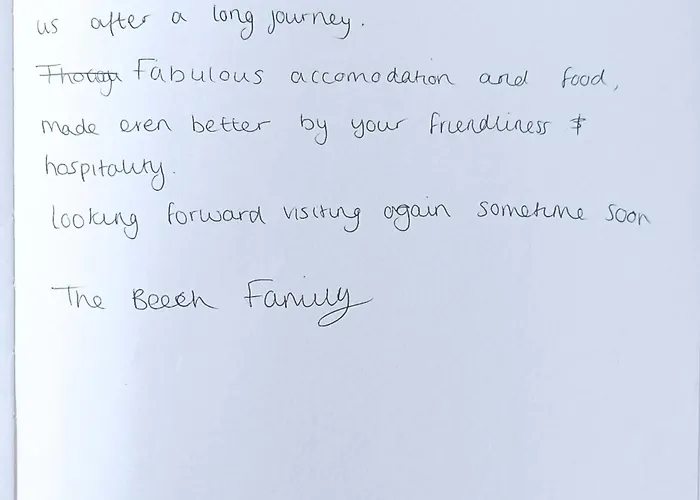 us after a long journey.
Fabulous accomodation and food,
made even better by your friendliness &
hospitality.
looking forward visiting again sometime soon
The Beech Family